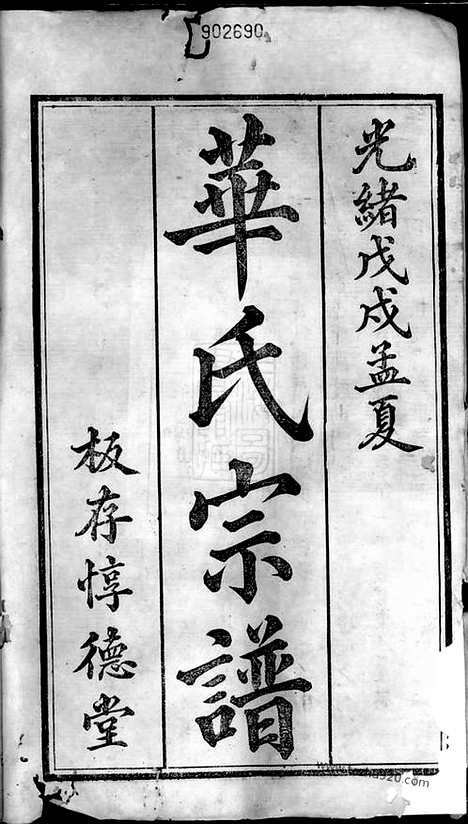 902690
光緒戊戌孟夏
華氏宗譜
板存惇德堂